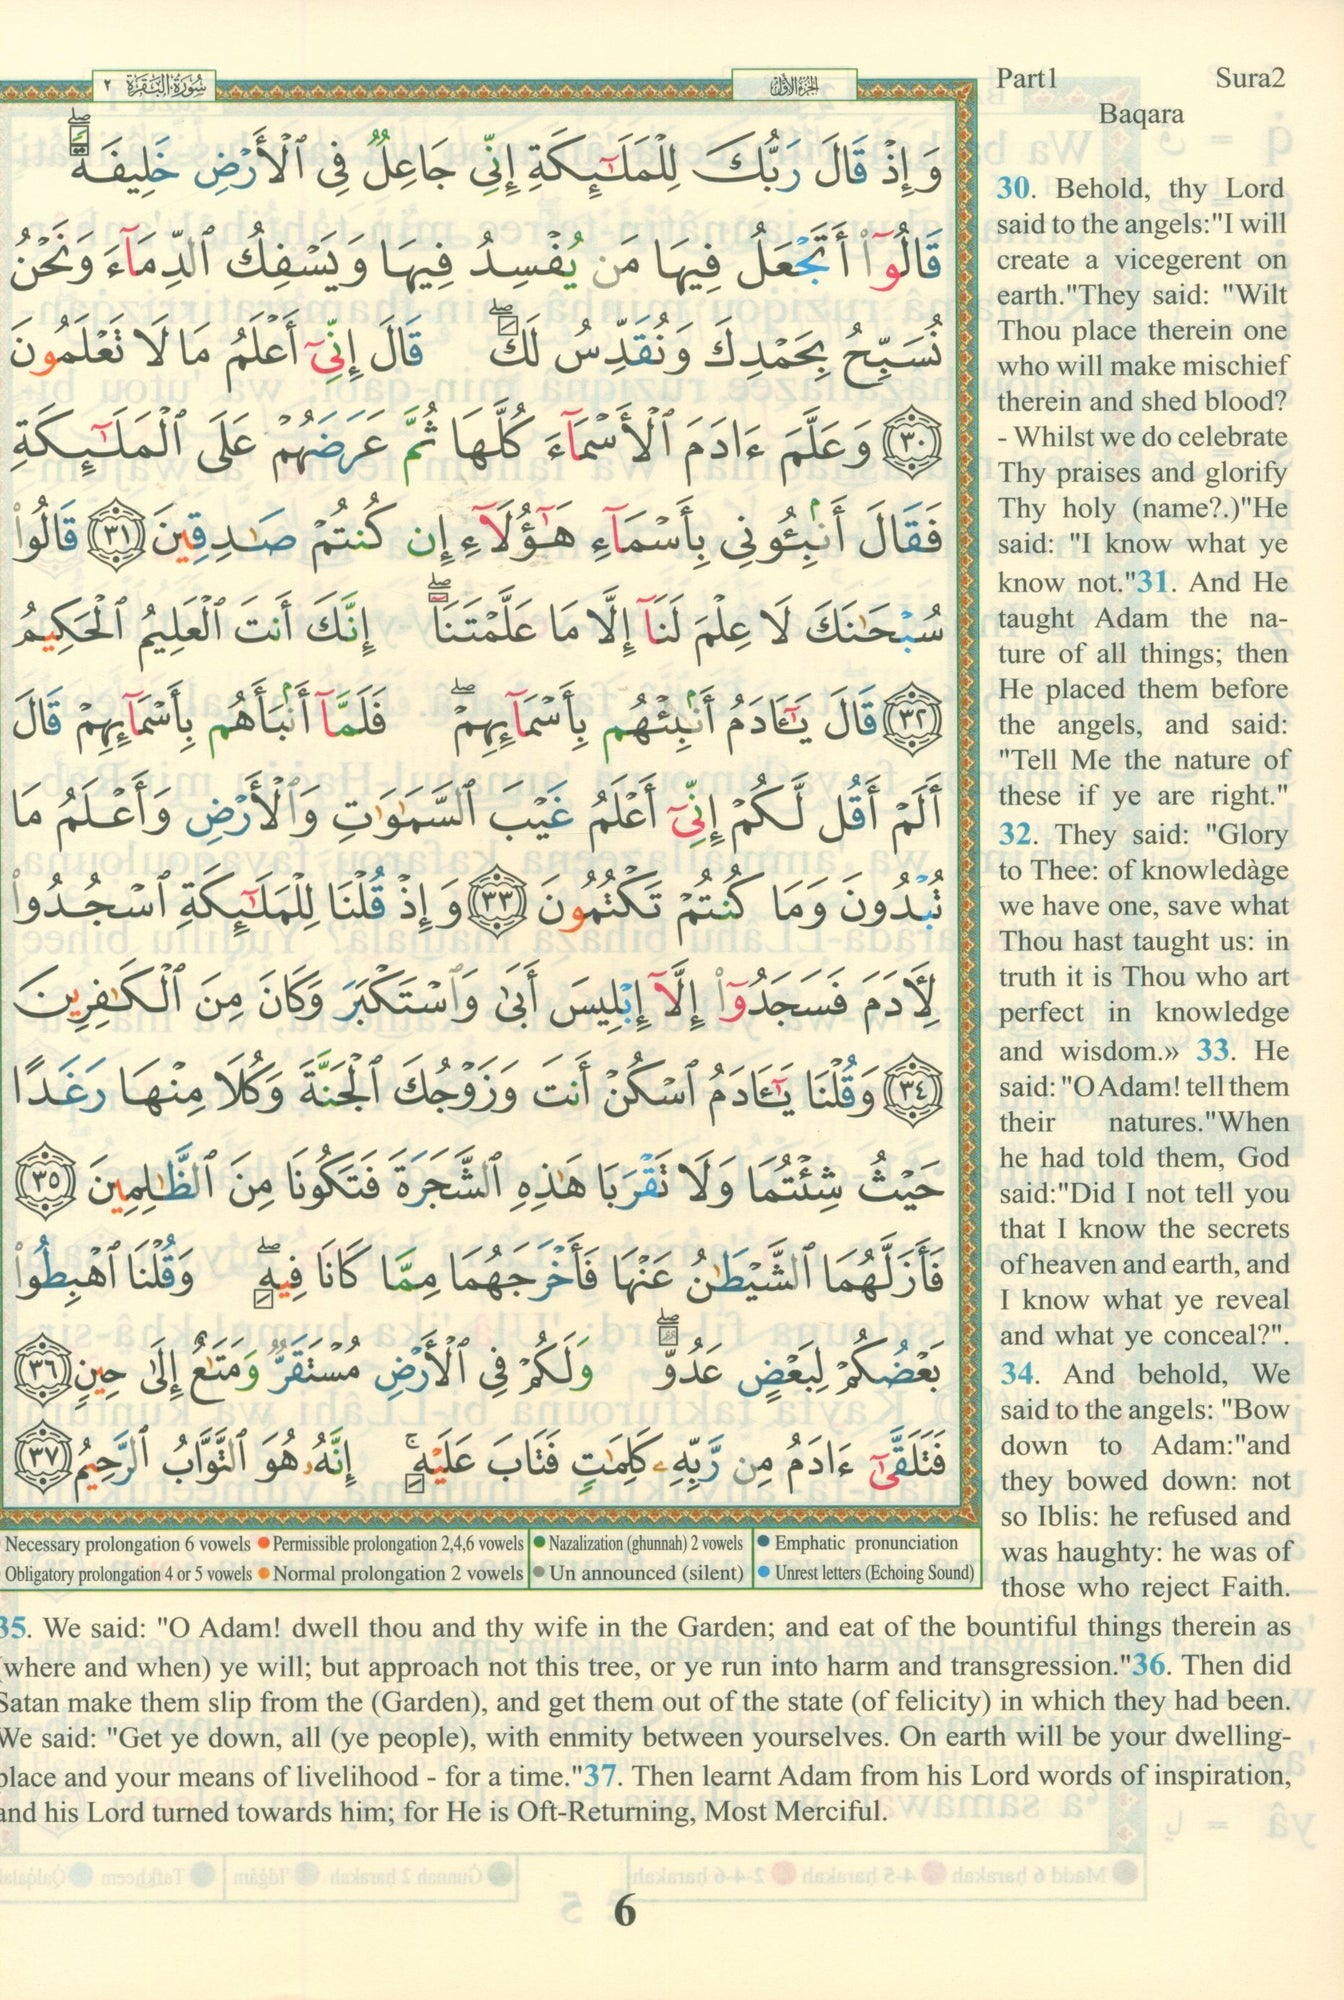 Part1 Sura2
Baqara
سُورَةُ البَقَرَة ٢
الجُزءُ الأوّل
وَإِذْ قَالَ رَبُّكَ لِلْمَلَٰٓئِكَةِ إِنِّي جَاعِلٌ فِى ٱلْأَرْضِ خَلِيفَةً ۖ
قَالُوٓا۟ أَتَجْعَلُ فِيهَا مَن يُفْسِدُ فِيهَا وَيَسْفِكُ ٱلدِّمَآءَ وَنَحْنُ
نُسَبِّحُ بِحَمْدِكَ وَنُقَدِّسُ لَكَ ۖ قَالَ إِنِّىٓ أَعْلَمُ مَا لَا تَعْلَمُونَ
٣٠ وَعَلَّمَ ءَادَمَ ٱلْأَسْمَآءَ كُلَّهَا ثُمَّ عَرَضَهُمْ عَلَى ٱلْمَلَٰٓئِكَةِ
فَقَالَ أَنۢبِـُٔونِى بِأَسْمَآءِ هَٰٓؤُلَآءِ إِن كُنتُمْ صَٰدِقِينَ ٣١ قَالُوا۟
سُبْحَٰنَكَ لَا عِلْمَ لَنَآ إِلَّا مَا عَلَّمْتَنَآ ۖ إِنَّكَ أَنتَ ٱلْعَلِيمُ ٱلْحَكِيمُ
٣٢ قَالَ يَٰٓـَٔادَمُ أَنۢبِئْهُم بِأَسْمَآئِهِمْ ۖ فَلَمَّآ أَنۢبَأَهُم بِأَسْمَآئِهِمْ قَالَ
أَلَمْ أَقُل لَّكُمْ إِنِّىٓ أَعْلَمُ غَيْبَ ٱلسَّمَٰوَٰتِ وَٱلْأَرْضِ وَأَعْلَمُ مَا
تُبْدُونَ وَمَا كُنتُمْ تَكْتُمُونَ ٣٣ وَإِذْ قُلْنَا لِلْمَلَٰٓئِكَةِ ٱسْجُدُوا۟
لِـَٔادَمَ فَسَجَدُوٓا۟ إِلَّآ إِبْلِيسَ أَبَىٰ وَٱسْتَكْبَرَ وَكَانَ مِنَ ٱلْكَٰفِرِينَ
٣٤ وَقُلْنَا يَٰٓـَٔادَمُ ٱسْكُنْ أَنتَ وَزَوْجُكَ ٱلْجَنَّةَ وَكُلَا مِنْهَا رَغَدًا
حَيْثُ شِئْتُمَا وَلَا تَقْرَبَا هَٰذِهِ ٱلشَّجَرَةَ فَتَكُونَا مِنَ ٱلظَّٰلِمِينَ ٣٥
فَأَزَلَّهُمَا ٱلشَّيْطَٰنُ عَنْهَا فَأَخْرَجَهُمَا مِمَّا كَانَا فِيهِ ۖ وَقُلْنَا ٱهْبِطُوا۟
بَعْضُكُمْ لِبَعْضٍ عَدُوٌّ ۖ وَلَكُمْ فِى ٱلْأَرْضِ مُسْتَقَرٌّ وَمَتَٰعٌ إِلَىٰ حِينٍ ٣٦
فَتَلَقَّىٰٓ ءَادَمُ مِن رَّبِّهِۦ كَلِمَٰتٍ فَتَابَ عَلَيْهِ ۚ إِنَّهُۥ هُوَ ٱلتَّوَّابُ ٱلرَّحِيمُ ٣٧
Necessary prolongation 6 vowels Permissible prolongation 2,4,6 vowels Nazalization (ghunnah) 2 vowels Emphatic pronunciation
Obligatory prolongation 4 or 5 vowels Normal prolongation 2 vowels Un announced (silent) Unrest letters (Echoing Sound)
30. Behold, thy Lord
said to the angels:"I will
create a vicegerent on
earth."They said: "Wilt
Thou place therein one
who will make mischief
therein and shed blood?
- Whilst we do celebrate
Thy praises and glorify
Thy holy (name?.)"He
said: "I know what ye
know not."31. And He
taught Adam the na-
ture of all things; then
He placed them before
the angels, and said:
"Tell Me the nature of
these if ye are right."
32. They said: "Glory
to Thee: of knowledàge
we have one, save what
Thou hast taught us: in
truth it is Thou who art
perfect in knowledge
and wisdom.» 33. He
said: "O Adam! tell them
their natures."When
he had told them, God
said:"Did I not tell you
that I know the secrets
of heaven and earth, and
I know what ye reveal
and what ye conceal?".
34. And behold, We
said to the angels: "Bow
down to Adam:"and
they bowed down: not
so Iblis: he refused and
was haughty: he was of
those who reject Faith.
35. We said: "O Adam! dwell thou and thy wife in the Garden; and eat of the bountiful things therein as
(where and when) ye will; but approach not this tree, or ye run into harm and transgression."36. Then did
Satan make them slip from the (Garden), and get them out of the state (of felicity) in which they had been.
We said: "Get ye down, all (ye people), with enmity between yourselves. On earth will be your dwelling-
place and your means of livelihood - for a time."37. Then learnt Adam from his Lord words of inspiration,
and his Lord turned towards him; for He is Oft-Returning, Most Merciful.
6